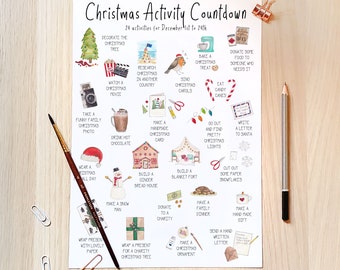 Christmas Activity Countdown
24 activities for December 1st to 24th
DECORATE THE
CHRISTMAS
TREE
RESEARCH
CHRISTMAS
IN ANOTHER
COUNTRY
BAKE A
CHRISTMAS
TREAT
DONATE SOME
FOOD TO
SOMEONE WHO
NEEDS IT
WATCH A
CHRISTMAS
MOVIE
SING
CHRISTMAS
CAROLS
EAT
CANDY
CANES
TAKE A
FUNNY FAMILY
CHRISTMAS
PHOTO
DRINK HOT
CHOCOLATE
MAKE A
HANDMADE
CHRISTMAS
CARD
GO OUT
AND FIND
PRETTY
CHRISTMAS
LIGHTS
WRITE
A LETTER
TO SANTA
WEAR A
CHRISTMAS
ALL DAY
BUILD A
GINGER
BREAD HOUSE
BUILD A
BLANKET FORT
CUT OUT
SOME PAPER
SNOWFLAKES
MAKE A
SNOW MAN
DONATE
TO A
CHARITY
HAVE A
FAMILY
DINNER
MAKE A
HAND MADE
GIFT
WRAP PRESENTS
WITH
PAPER
WRAP A PRESENT
FOR A CHARITY
CHRISTMAS
MAKE A
CHRISTMAS
ORNAMENT
SEND A HAND
WRITTEN
LETTER